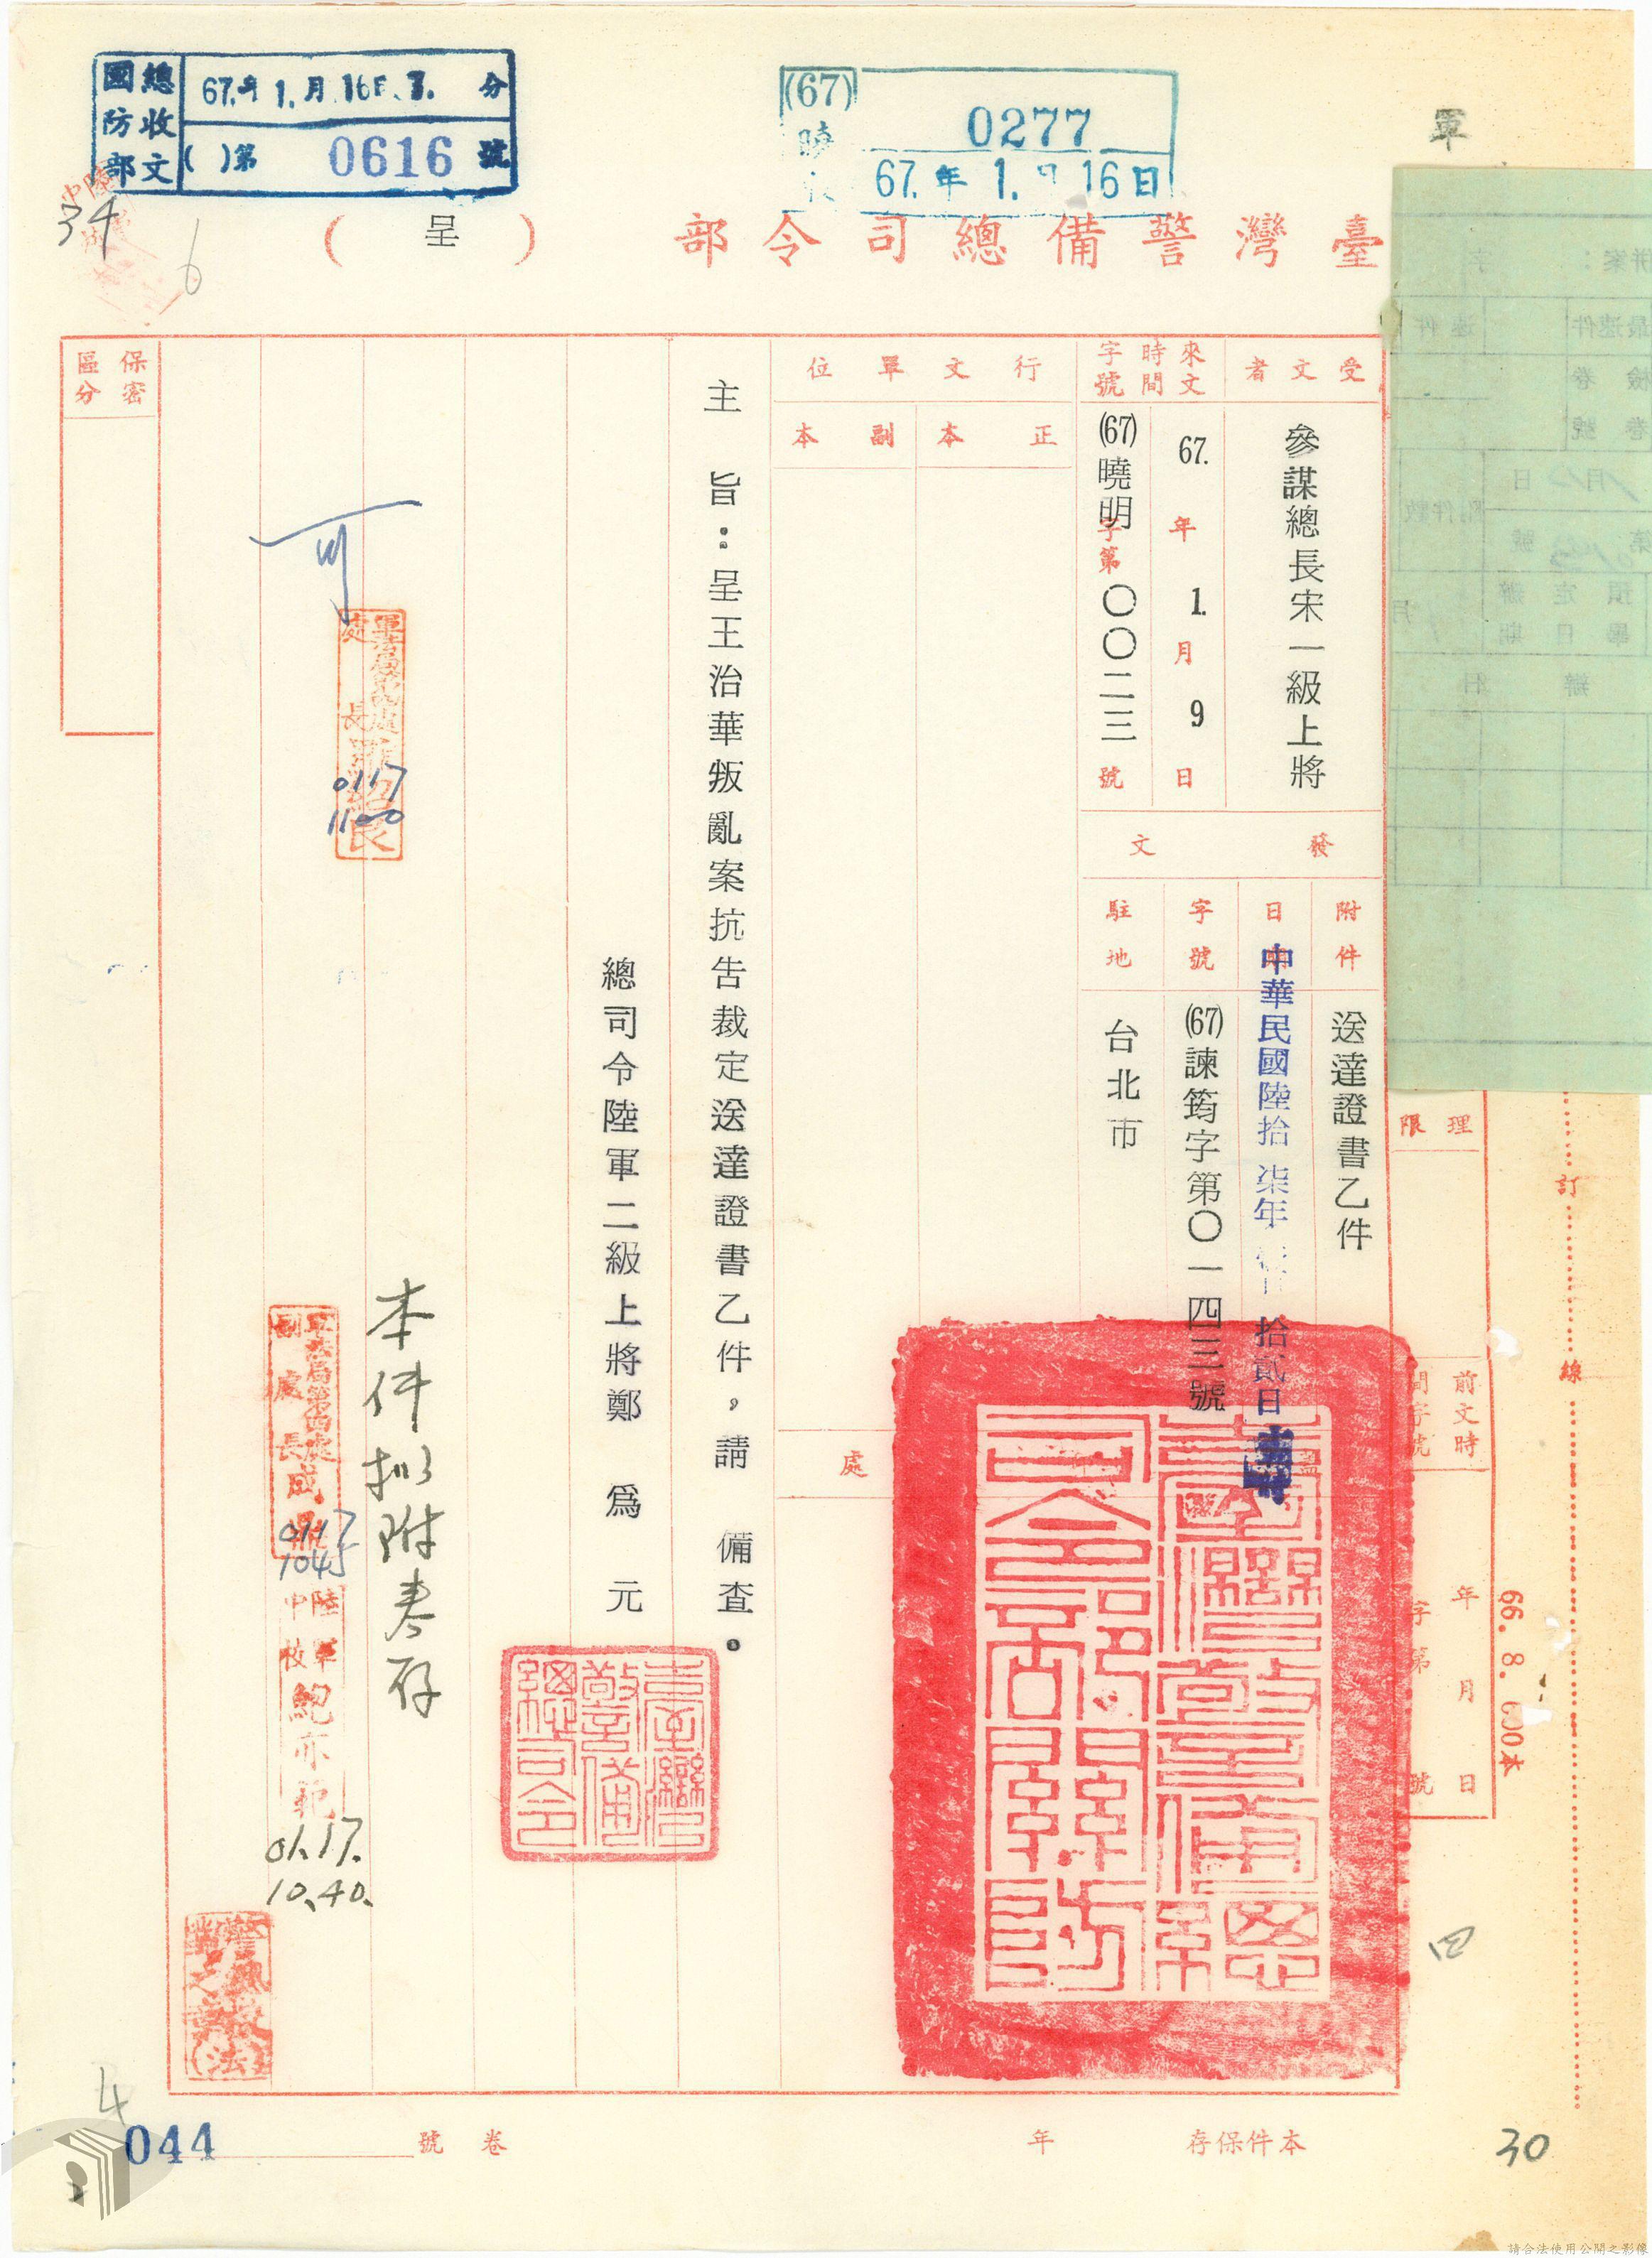 國防部
總收文
67.年1.月16日
分
( )第 0616 號
(67)
0277
67.年1.月16日
軍
34
6
臺灣警備總司令部(呈)
保密區分
受文者
參謀總長宋一級上將
來文時間字號
67.年1.月9日
(67)曉明字第〇〇二三號
行文單位
正本
副本
發文
附件
送達證書乙件
日期
中華民國陸拾柒年 拾貳日
字號
(67)諫筠字第〇一四三號
駐地
台北市
主旨:呈王治華叛亂案抗告裁定送達證書乙件,請 備查。
總司令陸軍二級上將鄭 為 元
臺灣警備總司令
臺灣警備總司令部關防
處
可
0117
1100
本件擬附卷存
0117
1045
陸軍中校鮑亦範
01.17.
10.40.
理限
前文時間字號
年月日
字第
號
訂
線
66. 8. 600本
4
044
卷號
本件保存 年
30
請合法使用公開之影像